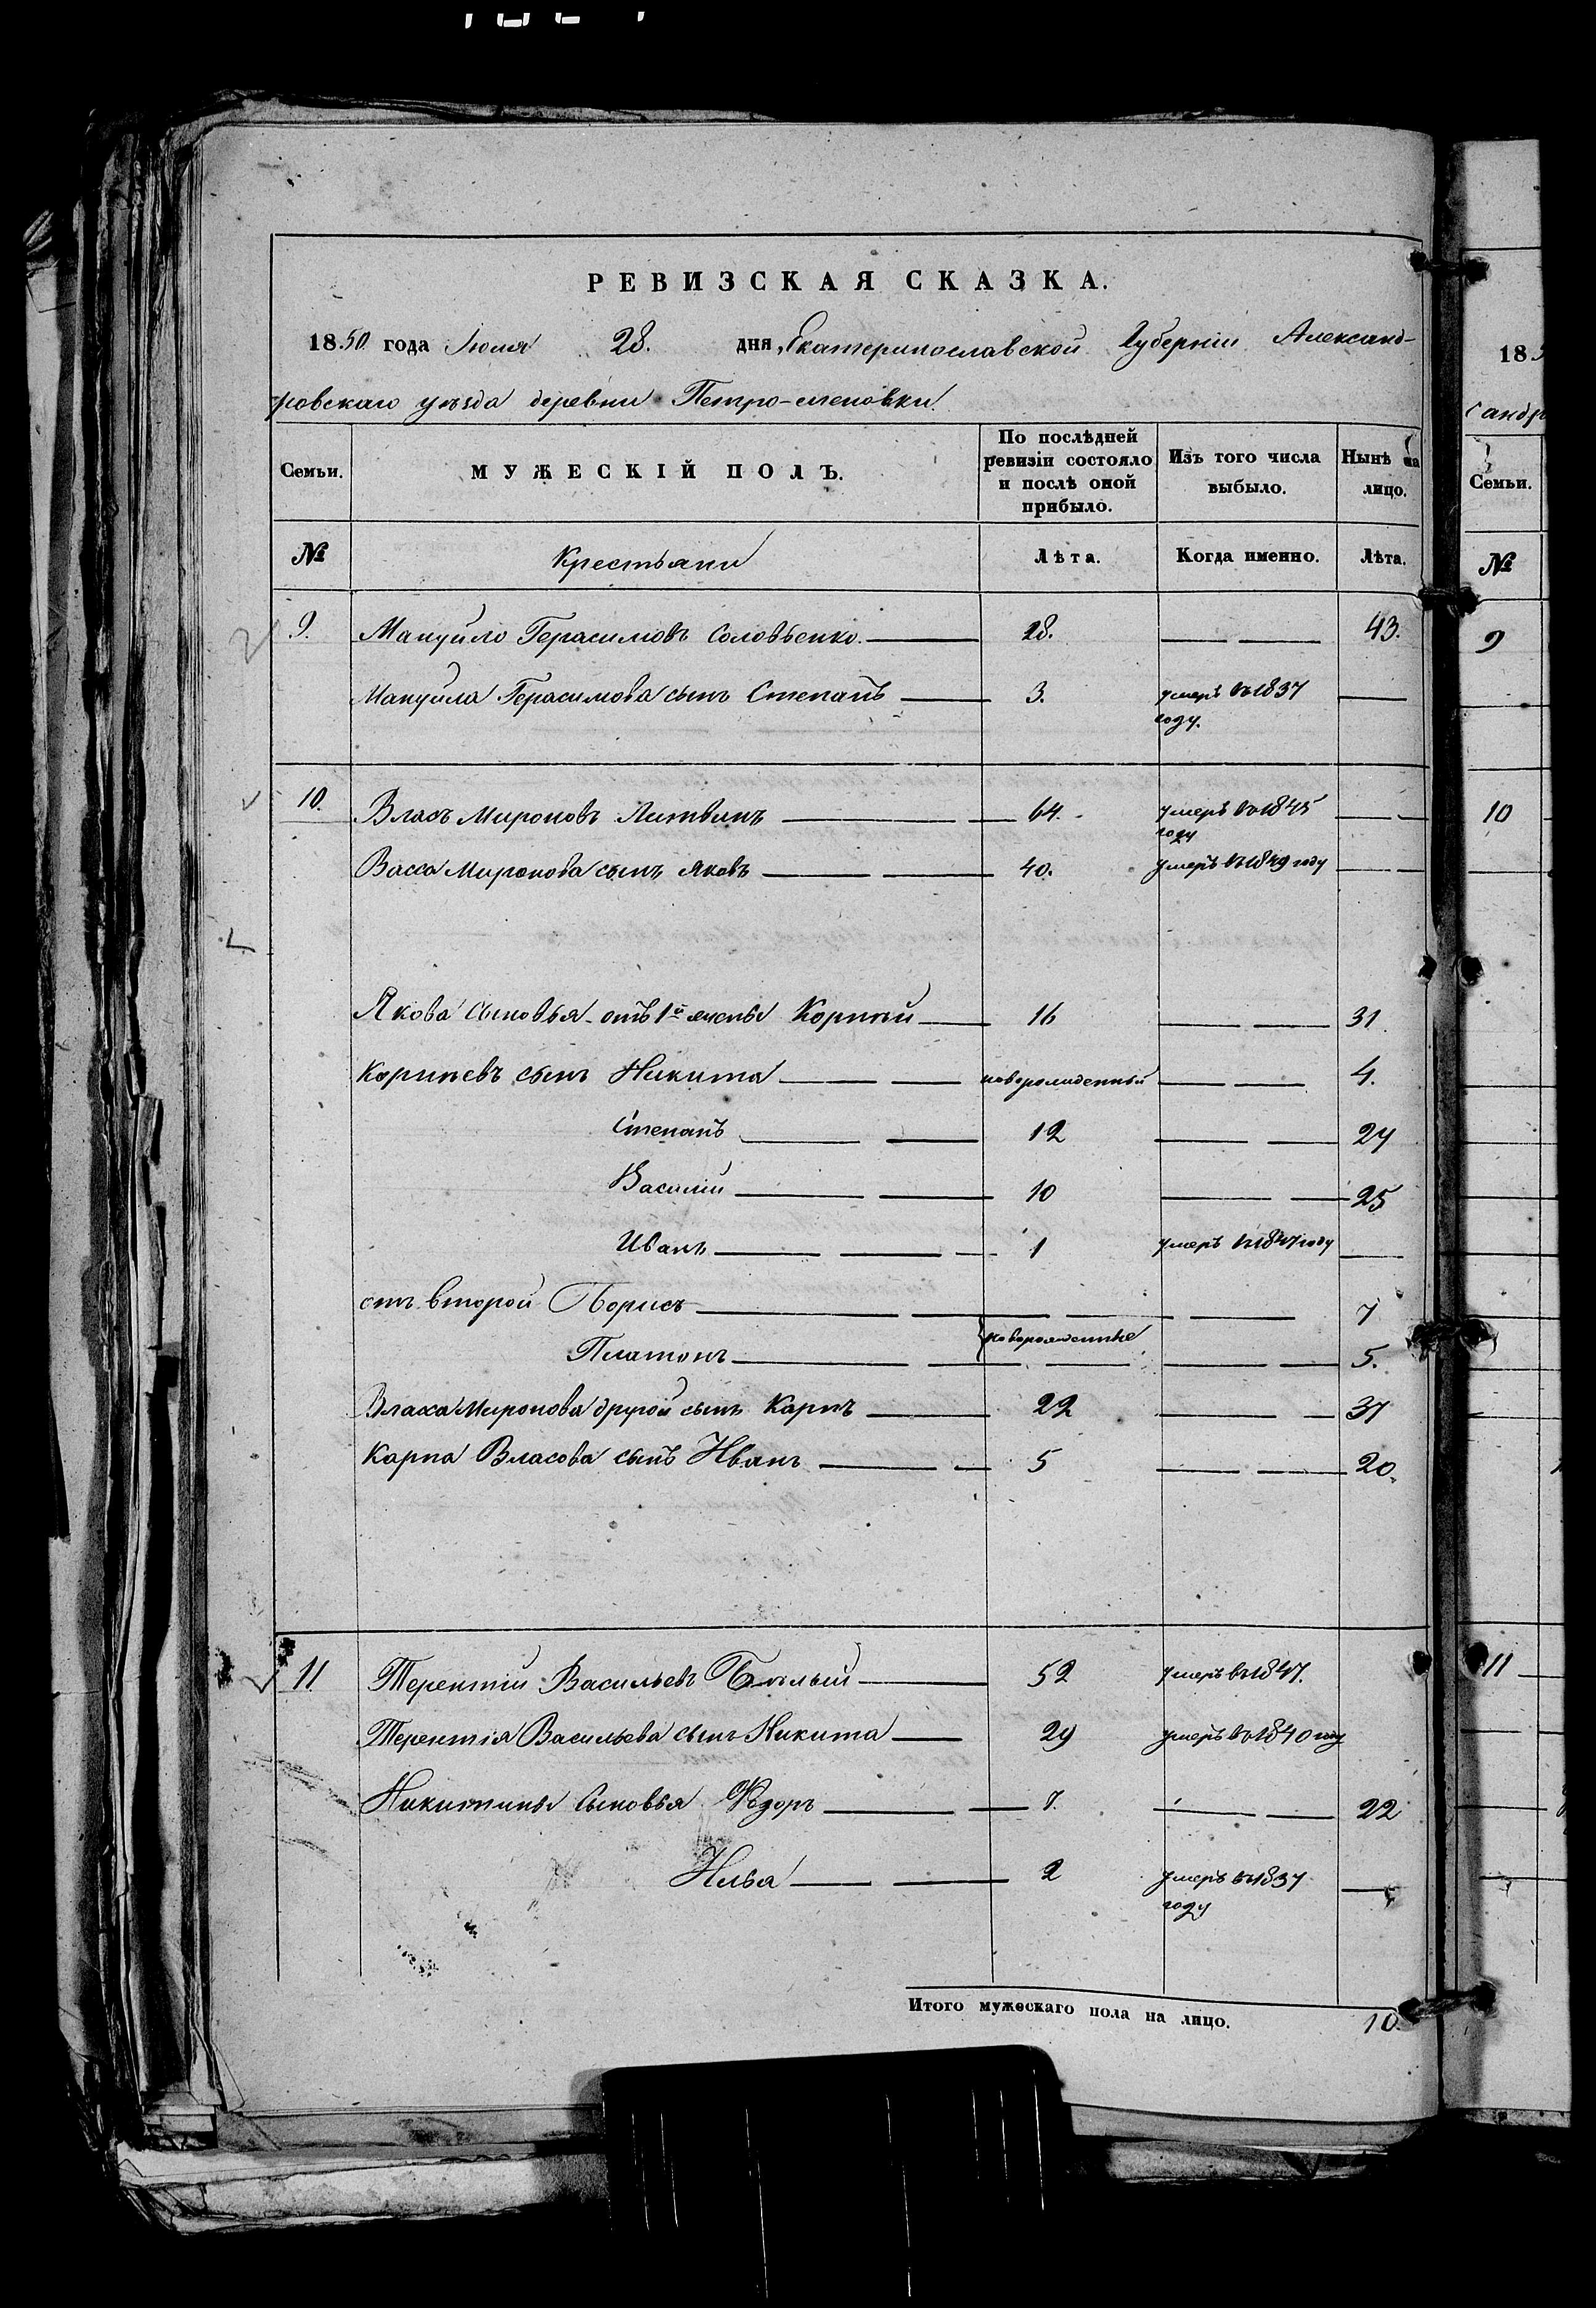 РЕВИЗСКАЯ СКАЗКА.
1850 года Июля 28. дня, Екатеринославской Губерніи Александ-
ровскаго уѣзда деревни Петро-степовки.
Семьи. МУЖЕСКІЙ ПОЛЪ. По послѣдней ревизіи состояло и послѣ оной прибыло. Изъ того числа выбыло. Нынѣ на лицо.
№ Крестьяни Лѣта. Когда именно. Лѣта.
9. Мануйло Герасимовъ Соловьенко. 28. 43.
Мануйла Герасимова сынъ Степанъ 3. умеръ въ 1837 году.
10. Власъ Мироновъ Литвинъ 64. умеръ въ 1845 году
Власа Миронова сынъ Яковъ 40. умеръ въ 1849 году
Якова сыновья отъ 1й жены Корнѣй 16 31
Корнѣевъ сынъ Никита новорожденный 4.
Степанъ 12 27
Василій 10 25
Иванъ 1 умеръ в 1847 году
отъ второй Борисъ 7
Платонъ новорожденные 5.
Власа Миронова другой сынъ Карпъ 22 37
Карпа Власова сынъ Иванъ 5 20.
11 Терентій Васильевъ Бѣлый 52 умеръ въ 1847.
Терентія Васильева сынъ Никита 29 умеръ въ 1840 году
Никитины сыновья Ѳедоръ 7. 22
Илья 2 умеръ въ 1837 году
Итого мужескаго пола на лицо. 10.
185
сандр
Семьи.
№
9
10
11